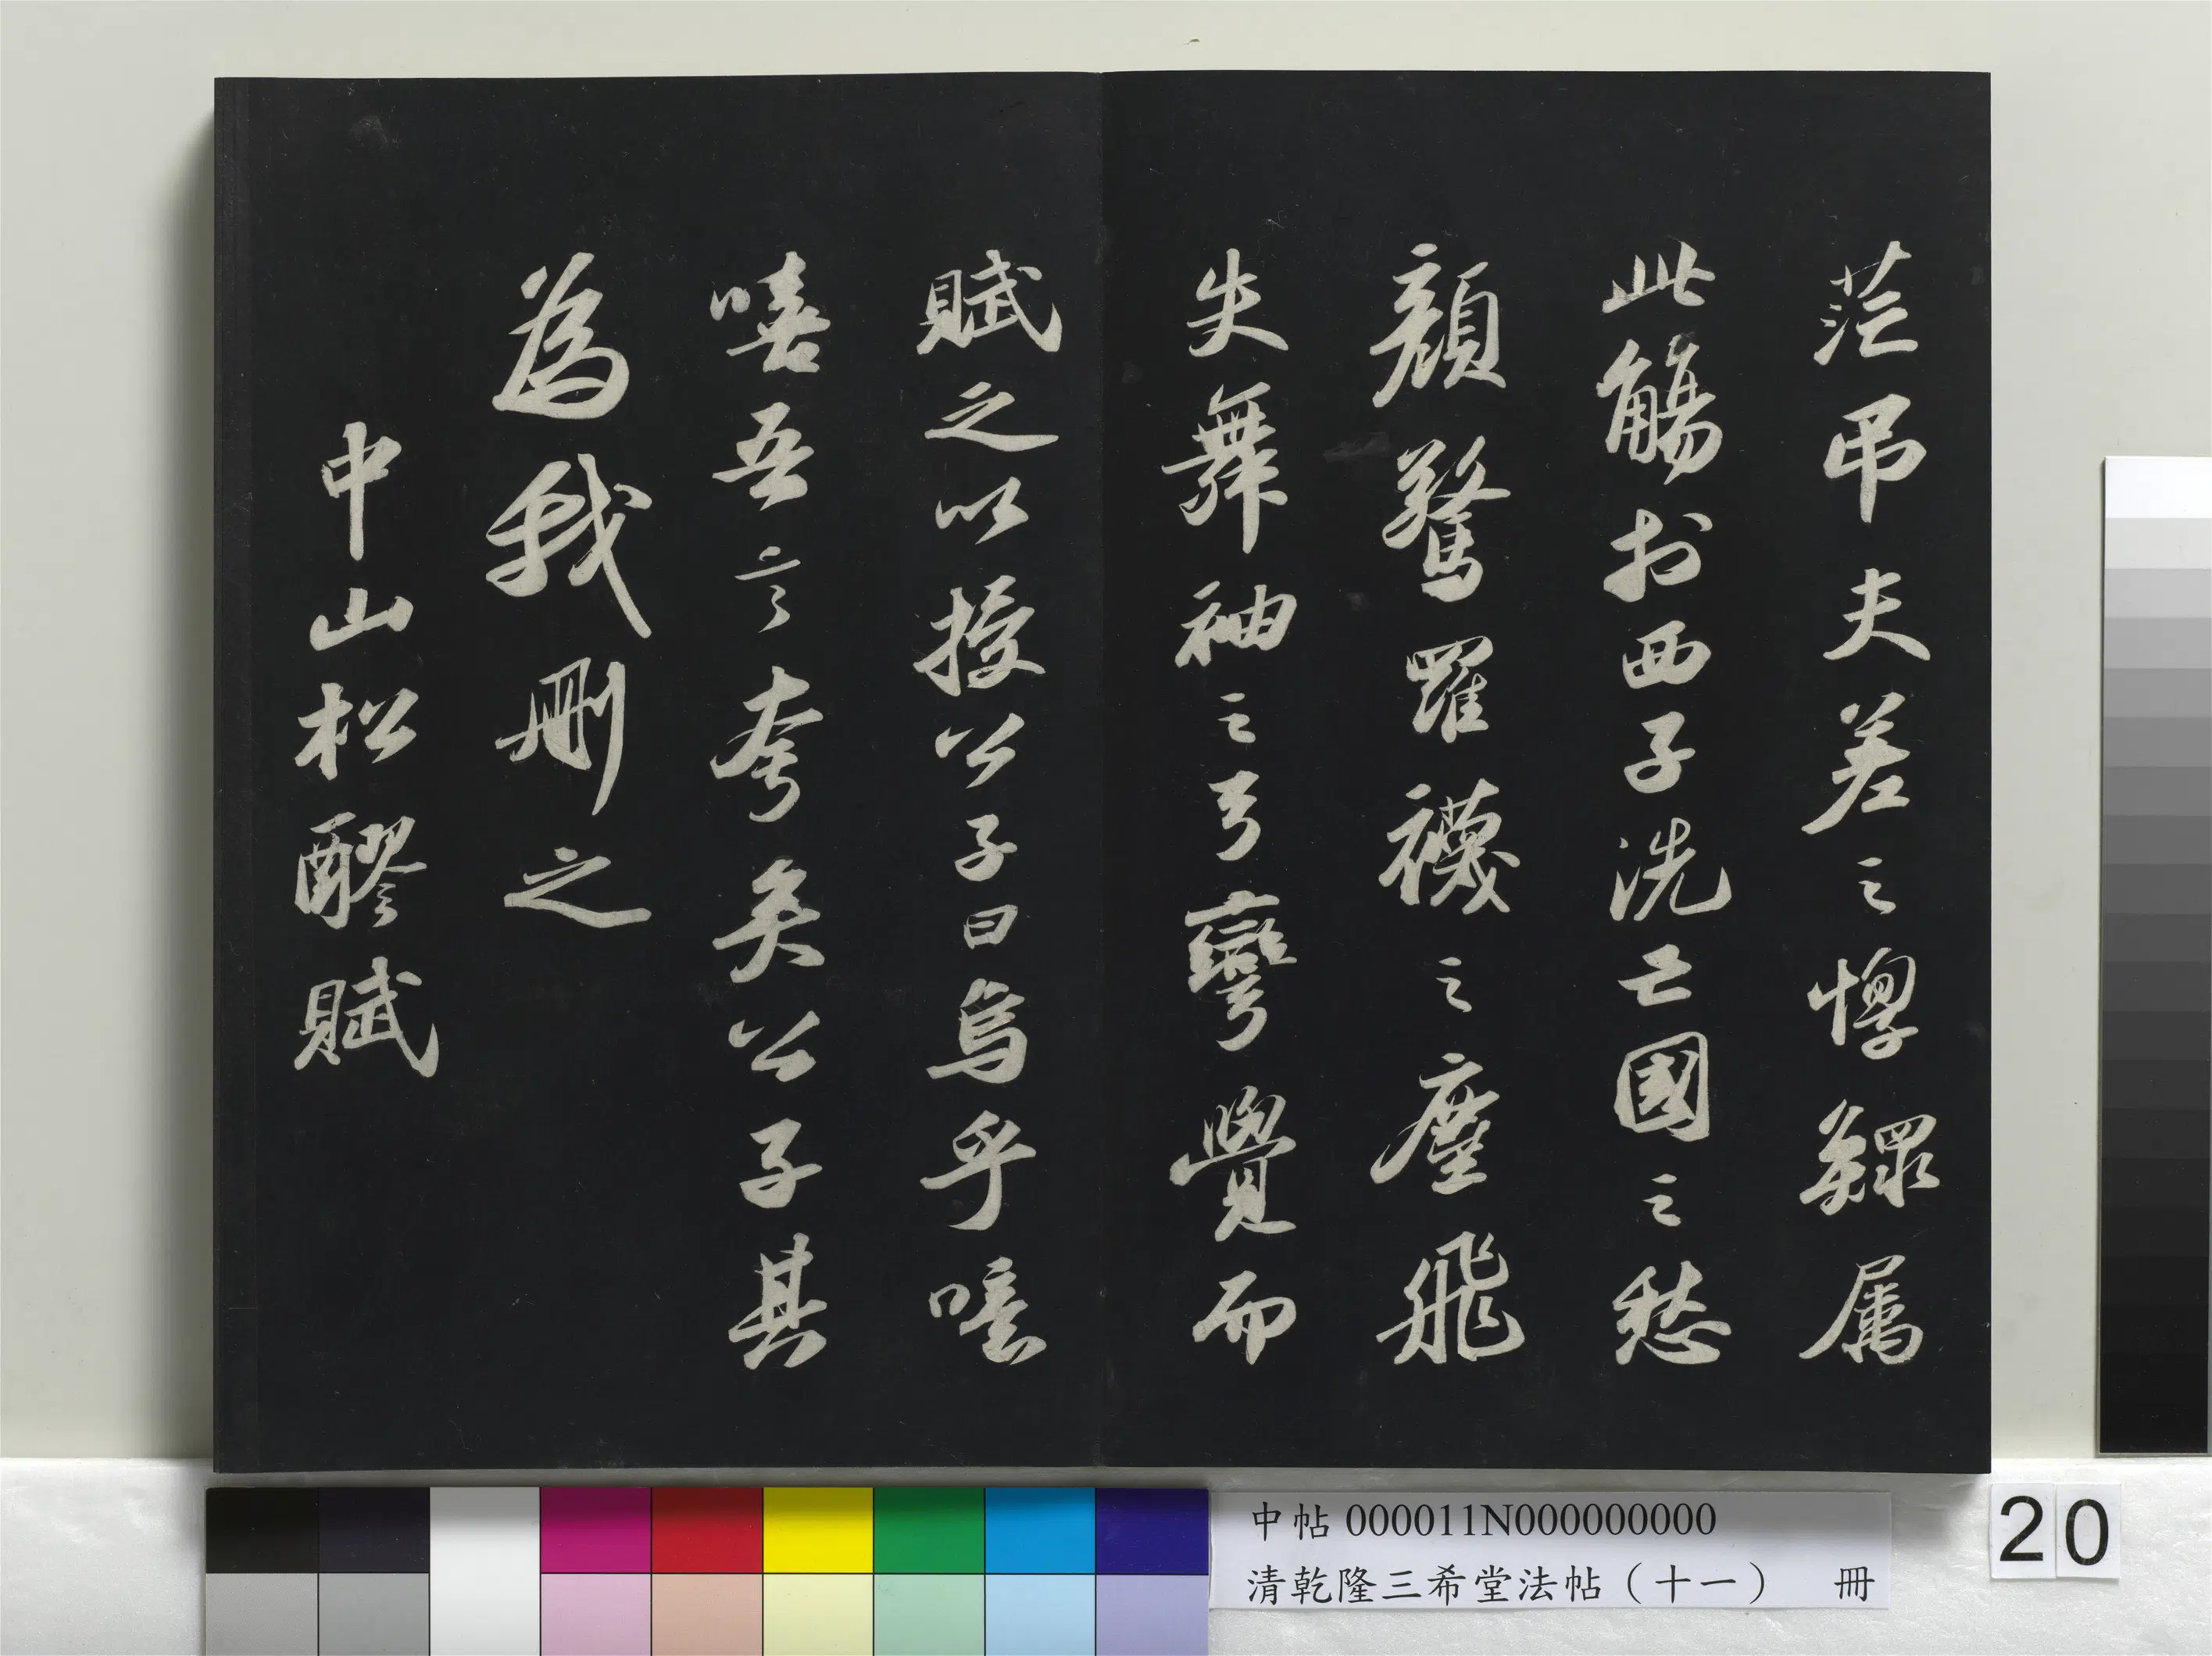 茫弔夫差之惸鰥属
此觴扵西子洗亡國之愁
顔驚羅襪之塵飛
失舞袖之弓彎覺而
賦之以授公子曰烏乎噫
嘻吾言夸矣公子其
為我刪之
中山松醪賦
中帖 000011N000000000
清乾隆三希堂法帖（十一） 冊
20